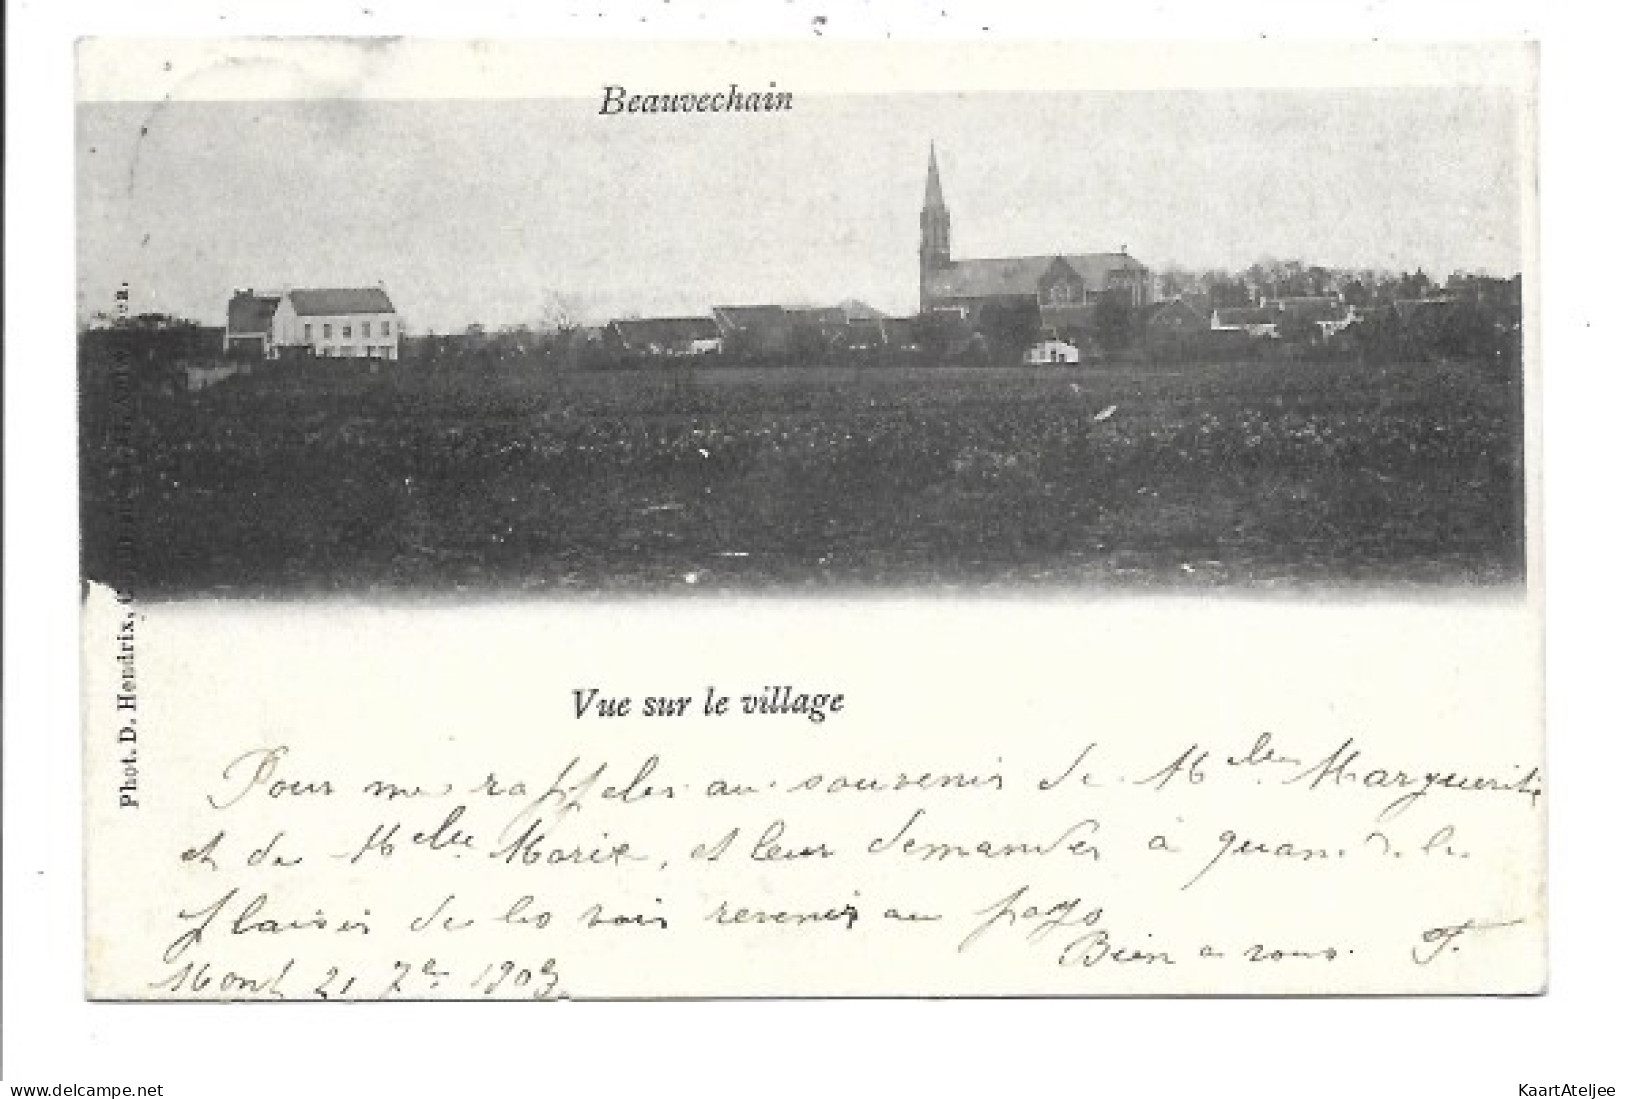 Beauvechain
Phot. D. Hendrix,
Vue sur le village
Pour me rappeler au souvenir de Melle Marguerite
et de Melle Marie, et leur demander à quand le
plaisir de les voir revenir au pays
Bien à vous. F.
Mont 21 7re 1903.
www.delcampe.net
KaartAteljee